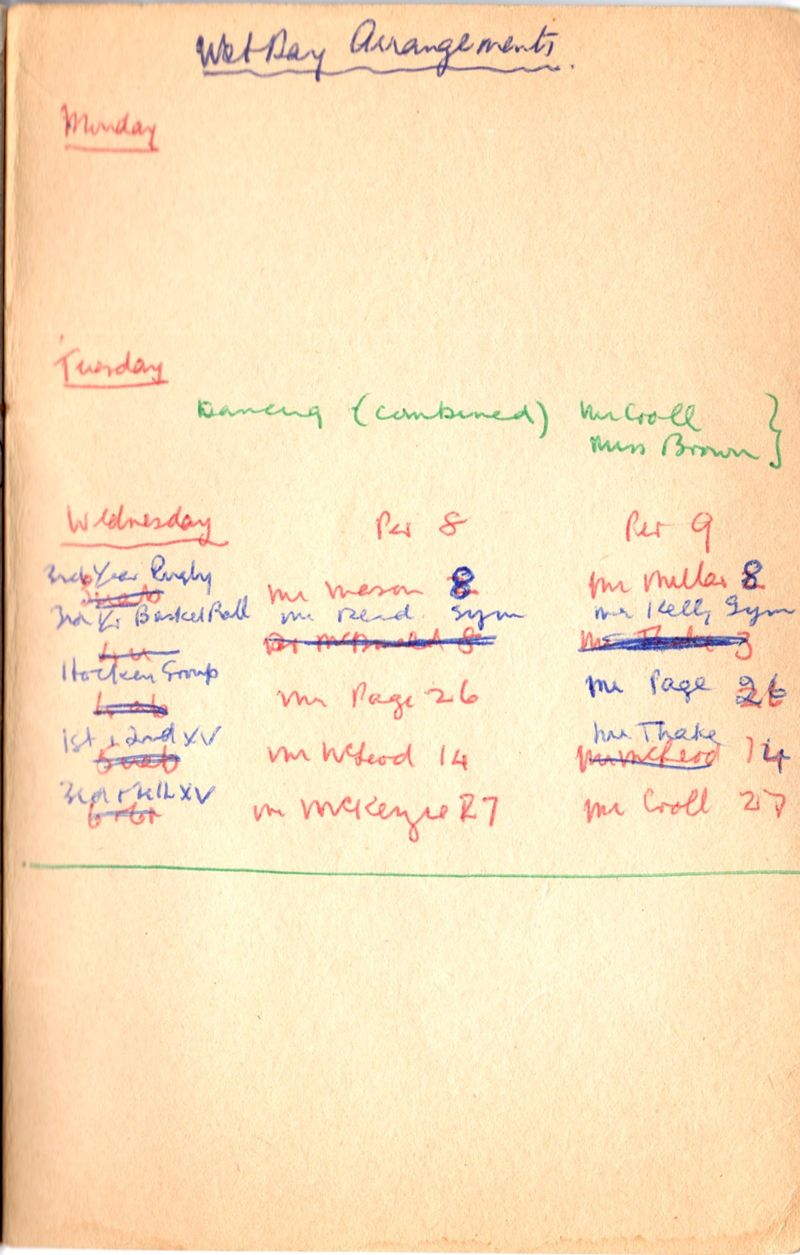 Wet Day Arrangements.
Monday
Tuesday
Dancing (combined) Mr Croll }
Miss Brown
Wednesday Per 8 Per 9
3rd Year Rugby Mr Mason 8 Mr Millar 8
3rd Yr BasketBall Mr Read Gym Mr Kelly Gym
Mr Thake 3
Hockey Group Mr Page 26 Mr Page 26
1st & 2nd XV Mr McLeod 14 Mr Thake
Mr McLeod 14
3rd & 4th XV Mr McKenzie 27 Mr Croll 27